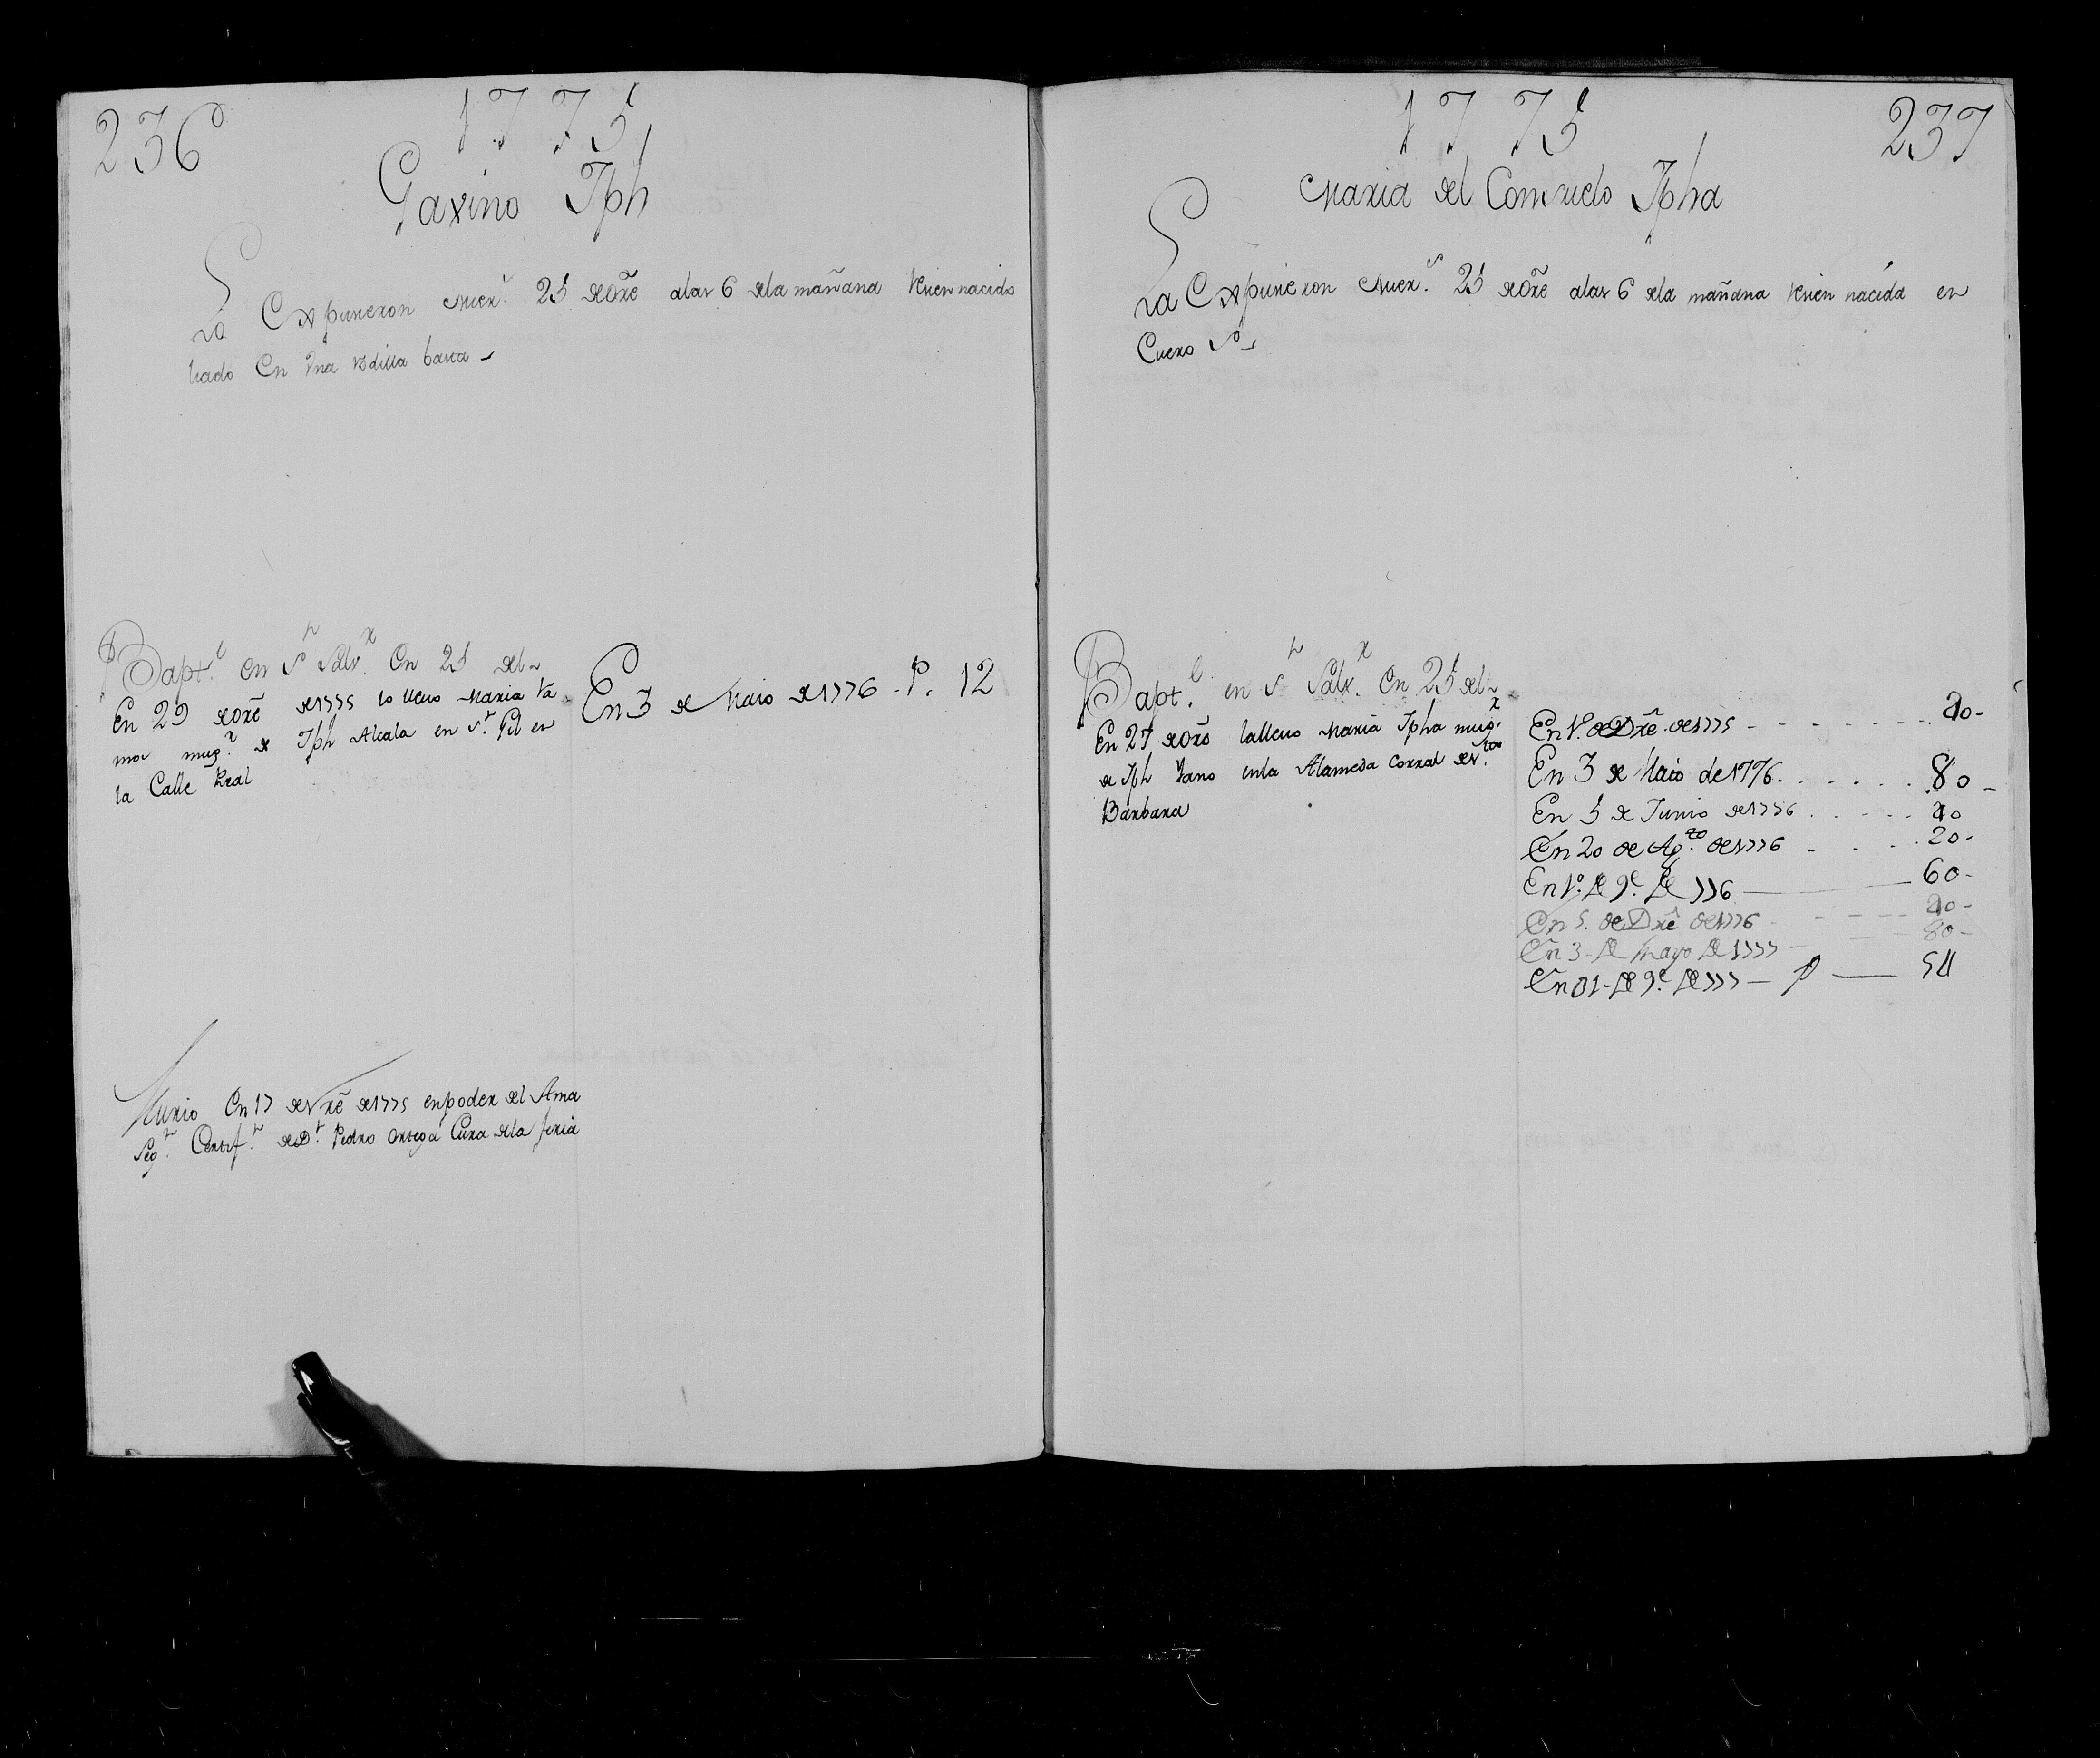 236
1775
Gavino Jph
Lo Expusieron Mier.s 25 de Ore a las 6 de la mañana recien nacido
liado en Una rodilla basta
Bapt.e en S.n Salv.r En 25 del
En 29 de Ore de 1775 lo llevo Maria Ra
mos mug.r de Jph Alcala en S.n Gil en
la Calle Real
En 3 de Maio de 1776 . P. 12
Murio En 17 de Nre de 1775 en poder del Ama
Seg.n Certif.n de D.n Pedro Ortega Cura de la feria
1775
237
Maria del Consuelo Jpha
La Expusieron Mier.s 25 de Ore a las 6 de la mañana recien nacida en
Cueros
Bapt.e en S.n Salv.r En 25 del
En 27 de Ore la llevo Maria Jpha mug.r
de Jph en la Alameda Corral de S.ta
Barbara
En 1.º de Dre de 1775 20
En 3 de Maio de 1776 80
En 5 de Junio de 1776 20
En 20 de Ag.to de 1776 20
En 1.º de 9.e de 776 60
En 5 de Dre de 1776 20
En 3 de mayo de 1777 80
de 9.e de 777 P 54